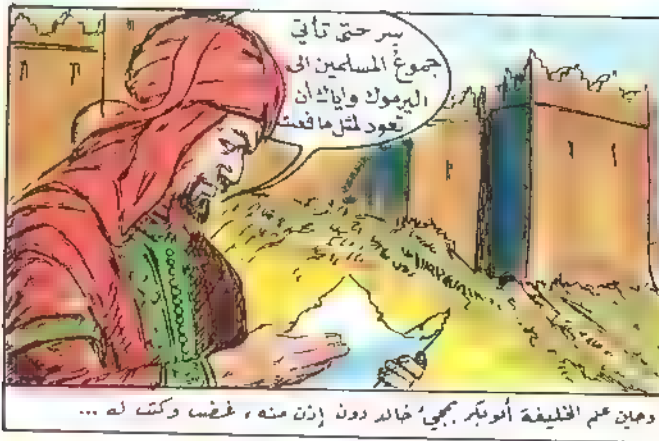 سر حتى تأتي
جموعَ المسلمين الى
اليرموك واياك أن
تعود لمثل ما فعلت
وحين علم الخليفة أبو بكر بمجيء خالد دون إذن منه، غضب وكتب له ...